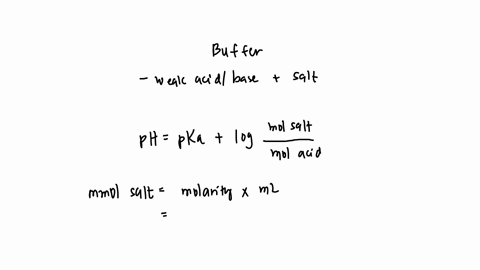 Buffer
- weak acid/base + salt
pH = pKa + log mol salt / mol acid
mmol salt = molarity x mL
=